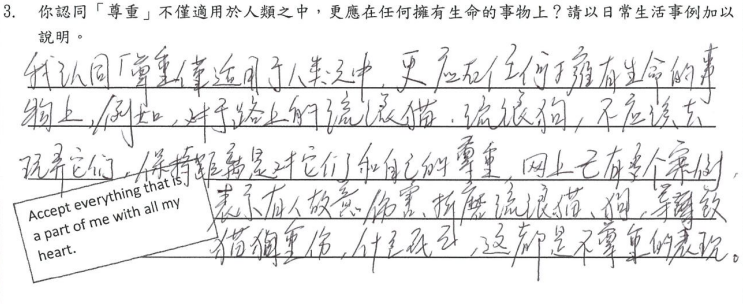 3. 你認同「尊重」不僅適用於人類之中，更應在任何擁有生命的事物上？請以日常生活事例加以
說明。
我认同「尊重僅适用于人类之中，更应在任何擁有生命的事
物上，例如，对于路上的流浪猫、流浪狗，不应该去
玩弄它们，保持距离是对它们和自己的尊重，网上已有多个案例，
表示有人故意伤害、折磨流浪猫、狗，导致
猫狗重伤，什至死亡，这都是不尊重的表现。
Accept everything that is
a part of me with all my
heart.